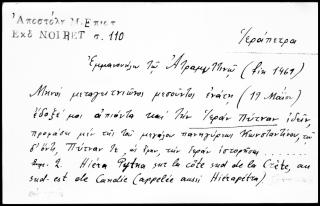 Ἀποστόλη Μ. Επιστ
Εκδ NOIRET σ. 110
Ἱεράπετρα
Ἐμμανουήλῳ τῷ Ἀτραμυττηνῷ (fin 1461)
Μηνὸς μεταγειτνιῶνος μεσοῦντος ἐνάτῃ (19 Μαΐου)
ἔδοξέ μοι ἀπιόντα καὶ τὴν Ἱερὰν Πύτναν ἰδεῖν,
μὲν τῆς τοῦ μεγάλου πανηγύρεως Κωνσταντίνου, τῇ
δ' ὄντι, Πύτναν τε, ὡς ἔφην, τὴν Ἱερὰν ἱστορήσας
2. Hiéra Pytna sur la côte sud de la Crète, au
sud-est de Candie (appelée aussi Hiérapétra).